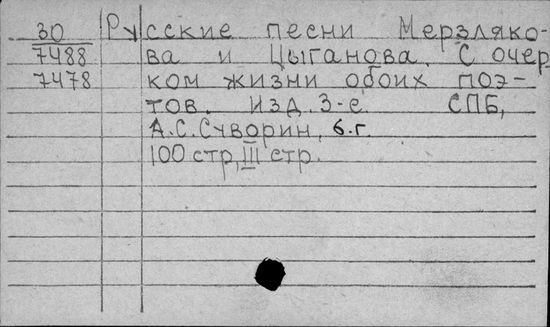 30 Русские песни Мерзляко-
7488 ва и Цыганова. С очер
7478 ком жизни обоих поэ-
тов. Изд. 3-е СПБ,
А.С.Суворин, б.г.
100 стр, III стр.